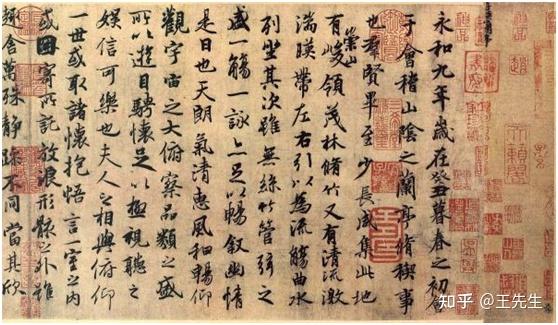 永和九年歲在癸丑暮春之初會
于會稽山陰之蘭亭脩稧事
也羣賢畢至少長咸集此地
有崇山峻領茂林脩竹又有清流激
湍暎帶左右引以為流觴曲水
列坐其次雖無絲竹管弦之
盛一觴一詠亦足以暢敘幽情
是日也天朗氣清惠風和暢仰
觀宇宙之大俯察品類之盛
所以遊目騁懷足以極視聽之
娛信可樂也夫人之相與俯仰
一世或取諸懷抱悟言一室之內
或因寄所託放浪形骸之外雖
趣舍萬殊靜躁不同當其欣
知乎 @王先生